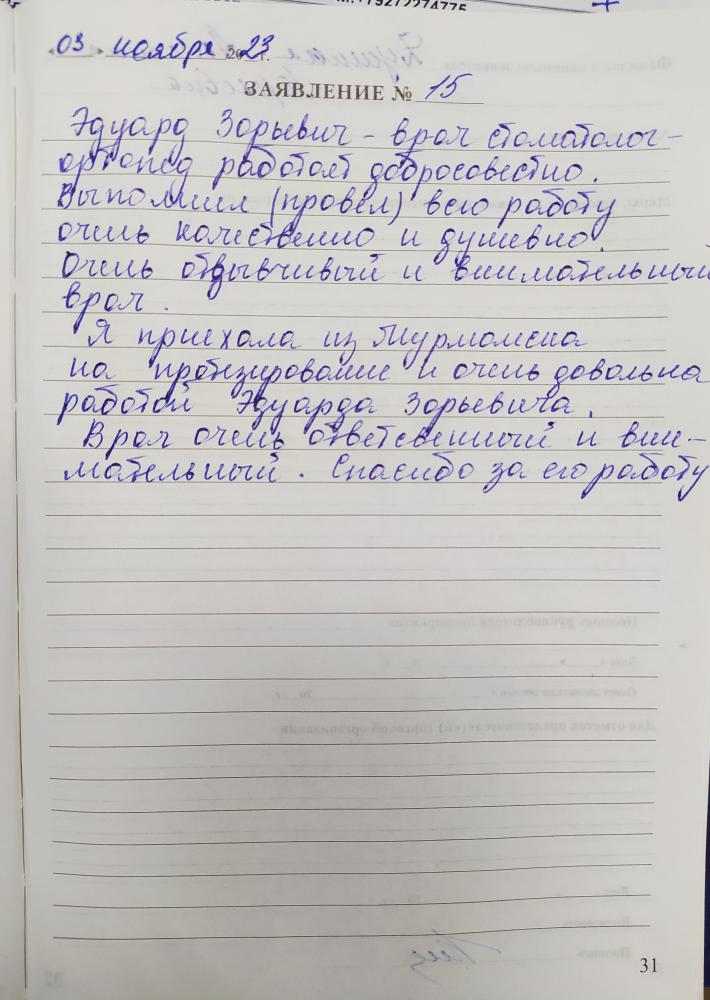 03 ноября 2023 г.
ЗАЯВЛЕНИЕ № 15
Эдуард Зорьевич - врач стоматолог-
ортопед работает добросовестно.
Выполнил (провел) всю работу
очень качественно и душевно.
Очень отзывчивый и внимательный
врач.
Я приехала из Мурманска
на протезирование и очень довольна
работой Эдуарда Зорьевича.
Врач очень ответсвенный и вни-
мательный. Спасибо за его работу
31